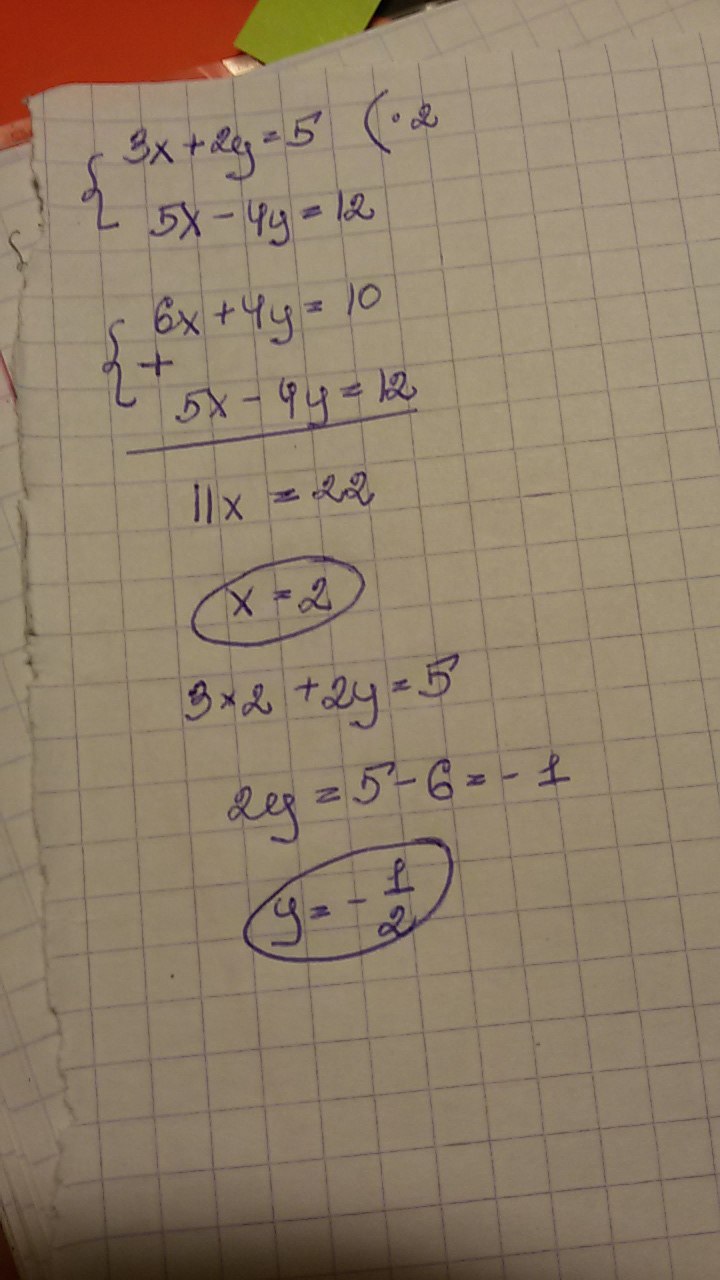 { 3x + 2y = 5 ( · 2
5x - 4y = 12
{ 6x + 4y = 10
+
5x - 4y = 12
11x = 22
x = 2
3 × 2 + 2y = 5
2y = 5 - 6 = - 1
y = - 1/2